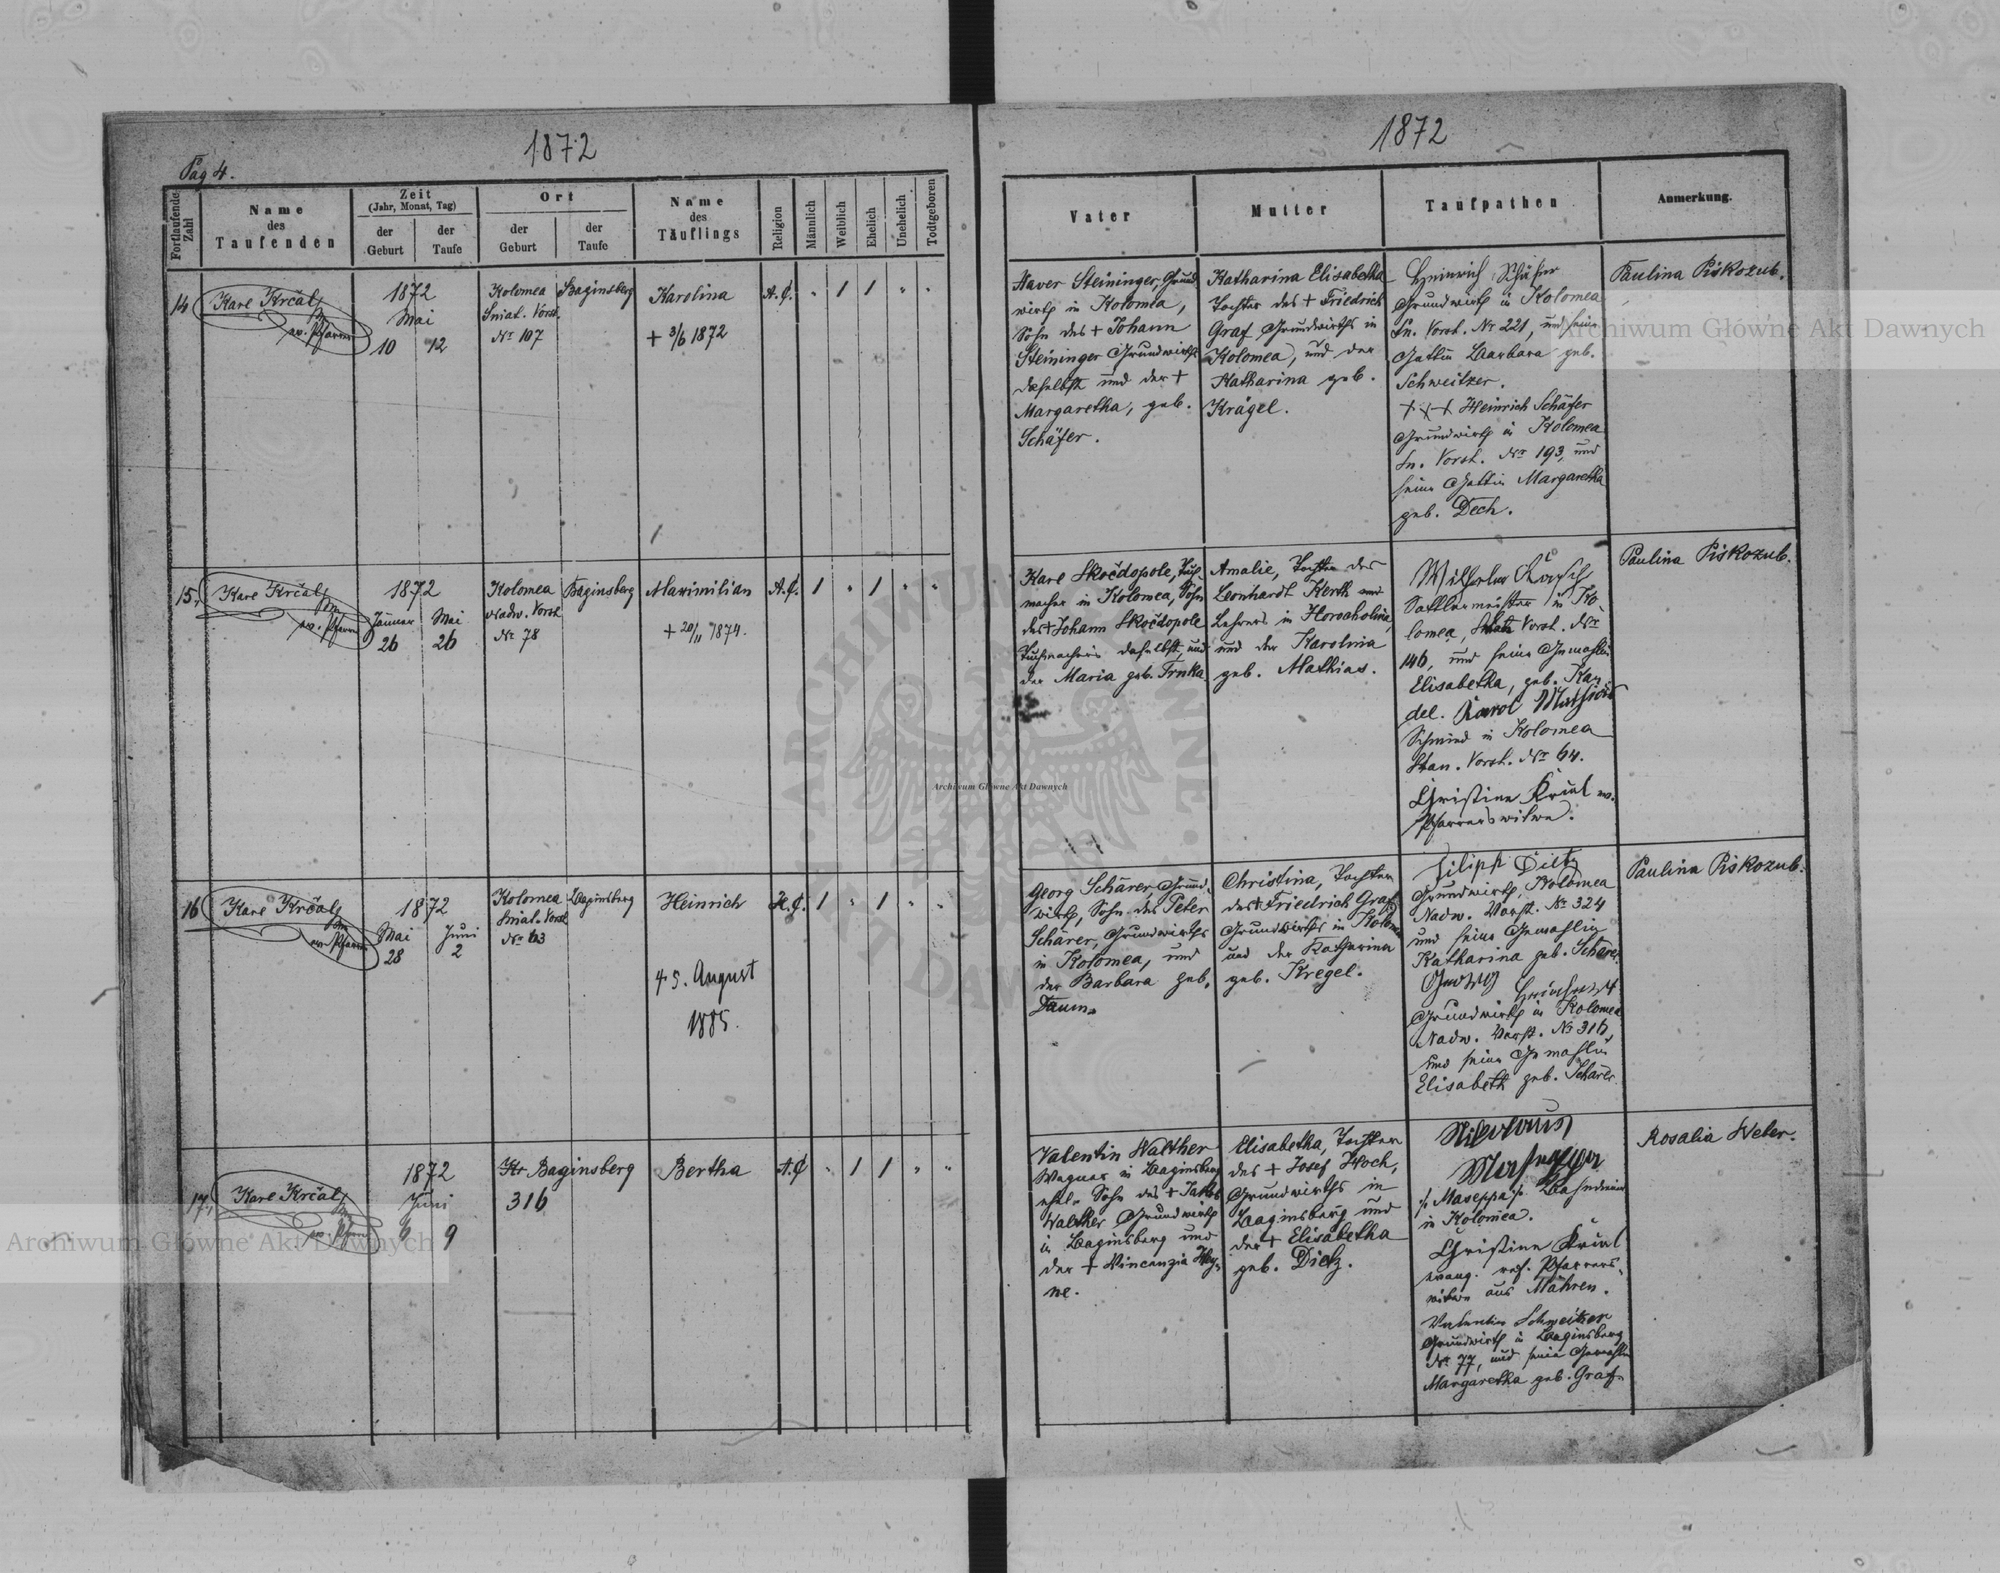 1872
Pag 4.
Fortlaufende Zahl
Name des Taufenden
Zeit (Jahr, Monat, Tag)
der Geburt
der Taufe
Ort
der Geburt
der Taufe
Name des Täuflings
Religion
Männlich
Weiblich
Ehelich
Unehelich
Todtgeboren
14
Karl Krčal
ev. Pfarrer
1872
Mai
10 12
Kolomea
Sniat. Vorst.
Nr 107
Baginsberg
Karolina
+ 3/6 1872
A. C.
" 1 1 " "
15.
Karl Krčal
ev. Pfarrer
1872
Jänner Mai
26 26
Kolomea
Nadw. Vorst.
Nr 78
Baginsberg
Maximilian
+ 20/11 1874.
A. C.
1 " 1 " "
16
Karl Krčal
ev. Pfarrer
1872
Mai Juni
28 2
Kolomea
Sniat. Vorst.
Nr 63
Baginsberg
Heinrich
+ 5. August
1885.
H. C.
1 " 1 " "
17.
Karl Krčal
ev. Pfarrer
1872
Juni
6 9
Baginsberg
316
Bertha
A. C.
" 1 1 " "
1872
Vater
Mutter
Taufpathen
Anmerkung.
Xaver Steininger, Grund-
wirth in Kolomea,
Sohn des + Johann
Steininger Grundwirths
daselbst und der +
Margaretha, geb.
Schäfer.
Katharina Elisabetha
Tochter des + Friedrich
Graf Grundwirths in
Kolomea, und der
Katharina geb.
Krägel.
Heinrich Schäfer
Grundwirth in Kolomea
Sn. Vorst. Nr 221, und seine
Gattin Barbara geb.
Schweitzer.
+++ Heinrich Schäfer
Grundwirth in Kolomea
Sn. Vorst. Nr 193, und
seine Gattin Margaretha
geb. Dech.
Paulina Piskozub.
Karl Skočdopole, Tuch-
macher in Kolomea, Sohn
des + Johann Skočdopole
Tuchmachers daselbst, und
der Maria geb. Trnka.
Amalie, Tochter des
Leonhardt Kerth
Lehrers in Horocholina,
und der Karolina
geb. Mathias.
Wilhelm
Sattlermeister in Ko-
lomea, Vorst. Nr
146, und seine Gemahlin
Elisabetha, geb. Kan-
del. Karol
Schmied in Kolomea
Stan. Vorst. Nr 64.
Christine Krčal ev.
Pfarrerswitwe.
Paulina Piskozub.
Georg Schärer Grund-
wirth, Sohn des Peter
Schärer, Grundwirths
in Kolomea, und
der Barbara geb.
Daum.
Christina, Tochter
des + Friedrich Graf
Grundwirths in Kolomea
und der Katharina
geb. Kregel.
Filipp Dietz
Grundwirth, Kolomea
Nadw. Vorst. Nr 324
und seine Gemahlin
Katharina geb. Schärer
Georg
Grundwirth in Kolomea
Nadw. Vorst. Nr 316,
und seine Gemahlin
Elisabeth geb. Schärer.
Paulina Piskozub.
Valentin Walther
Wagner in Baginsberg
ehel. Sohn des + Jakob
Walther Grundwirth
in Baginsberg und
der + Vincenzia Hey-
ne.
Elisabetha, Tochter
des + Josef Hoch,
Grundwirths in
Baginsberg und
der + Elisabetha
geb. Dietz.
Nikolaus
/: Maseppa :/ Bahndiener
in Kolomea.
Christine Krčal
evang. ref. Pfarrers-
witwe aus Mähren.
Valentin Schweitzer
Grundwirth in Baginsberg
Nr 77, und seine Gemahlin
Margaretha geb. Graf.
Rosalia Weber.
Archiwum Główne Akt Dawnych
Archiwum Główne Akt Dawnych
Archiwum Główne Akt Dawnych